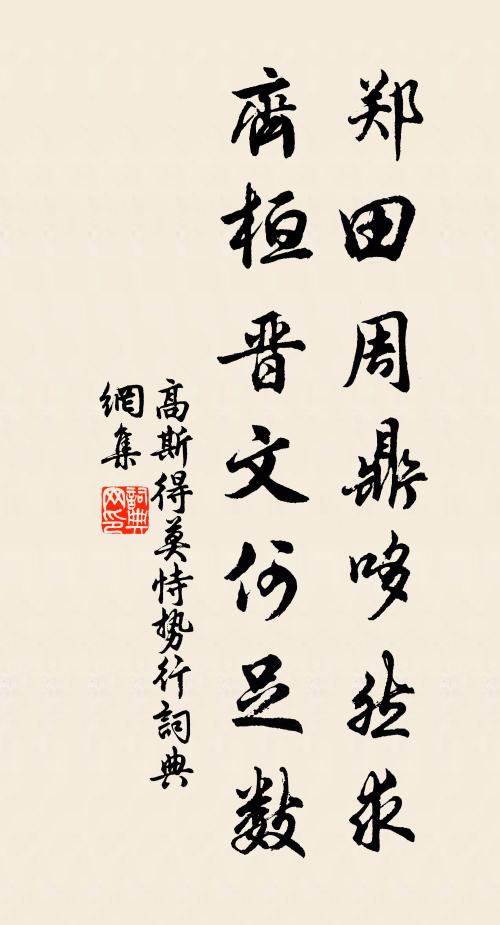 郑田周鼎哆然求
齊桓晋文何足数
高斯得莫恃势行詞典
網集
詞典网印